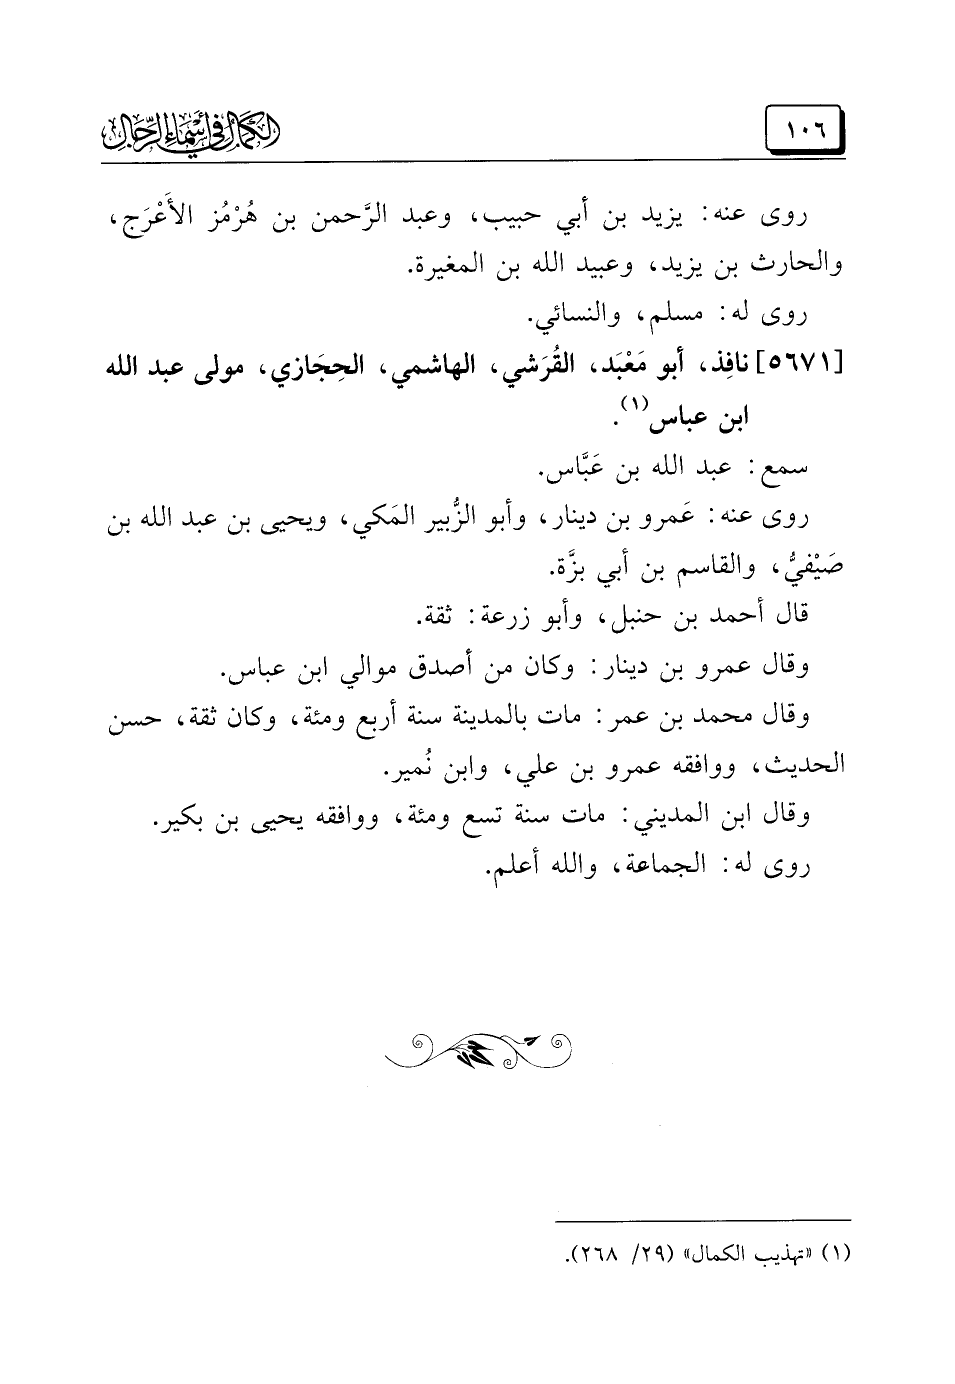 ١٠٦
الكمال في أسماء الرجال
روى عنه: يزيد بن أبي حبيب، وعبد الرَّحمن بن هُرْمُز الأَعْرَج،
والحارث بن يزيد، وعبيد الله بن المغيرة.
روى له: مسلم، والنسائي.
[٥٦٧١] نافِذ، أبو مَعْبَد، القُرَشي، الهاشمي، الحِجَازي، مولى عبد الله
ابن عباس(١).
سمع: عبد الله بن عَبَّاس.
روى عنه: عَمرو بن دينار، وأبو الزُّبير المَكي، ويحيى بن عبد الله بن
صَيْفيُّ، والقاسم بن أبي بزَّة.
قال أحمد بن حنبل، وأبو زرعة: ثقة.
وقال عمرو بن دينار: وكان من أصدق موالي ابن عباس.
وقال محمد بن عمر: مات بالمدينة سنة أربع ومئة، وكان ثقة، حسن
الحديث، ووافقه عمرو بن علي، وابن نُمير.
وقال ابن المديني: مات سنة تسع ومئة، ووافقه يحيى بن بكير.
روى له: الجماعة، والله أعلم.
(١) «تهذيب الكمال» (٢٩/ ٢٦٨).